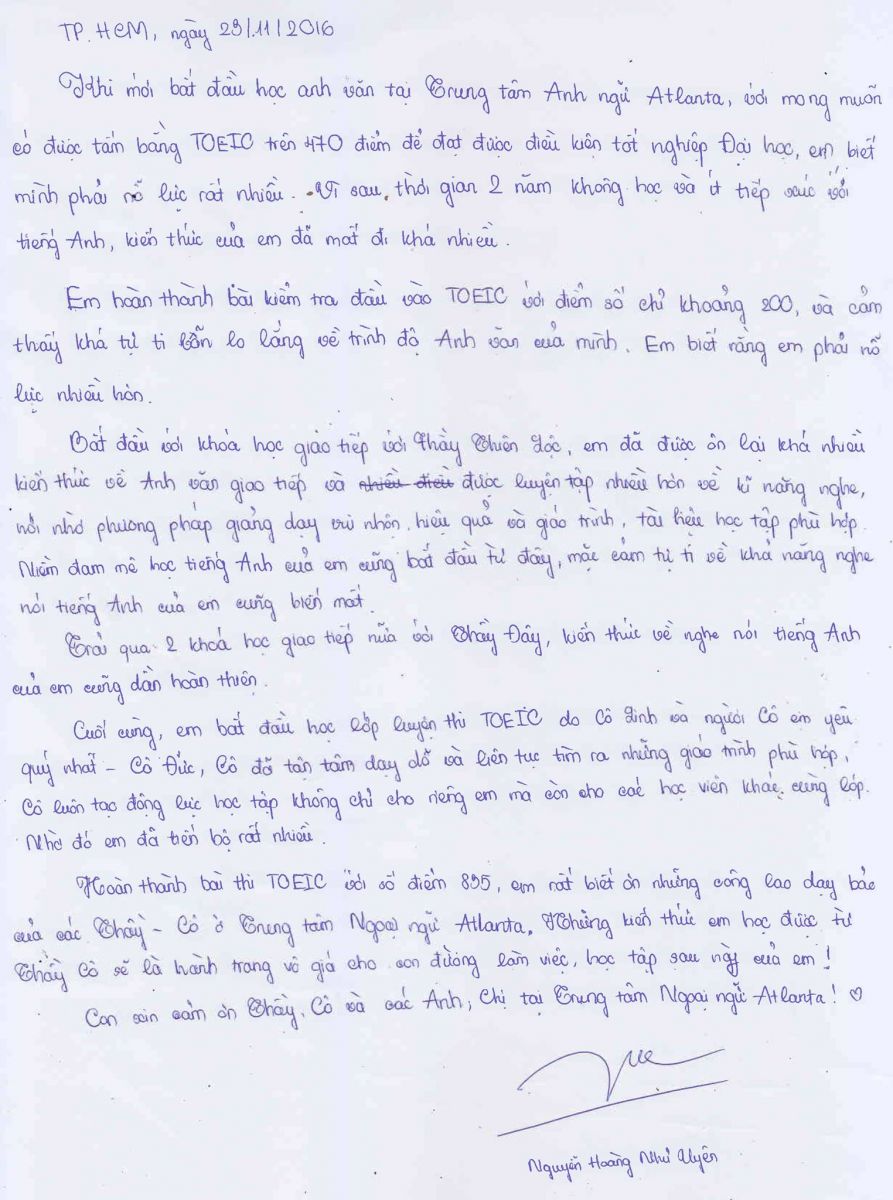 TP. HCM, ngày 29/11/2016
Khi mới bắt đầu học anh văn tại Trung tâm Anh ngữ Atlanta, với mong muốn
có được tấm bằng TOEIC trên 470 điểm để đạt được điều kiện tốt nghiệp Đại học, em biết
mình phải nỗ lực rất nhiều. Vì sau thời gian 2 năm không học và ít tiếp xúc với
tiếng Anh, kiến thức của em đã mất đi khá nhiều.
Em hoàn thành bài kiểm tra đầu vào TOEIC với điểm số chỉ khoảng 200, và cảm
thấy khá tự ti lẫn lo lắng về trình độ Anh văn của mình. Em biết rằng em phải nỗ
lực nhiều hơn.
Bắt đầu với khóa học giao tiếp với Thầy Thiên Lộc, em đã được ôn lại khá nhiều
kiến thức về Anh văn giao tiếp và nhiều điều được luyện tập nhiều hơn về kĩ năng nghe,
nói nhờ phương pháp giảng dạy vui nhộn, hiệu quả và giáo trình, tài liệu học tập phù hợp.
Niềm đam mê học tiếng Anh của em cũng bắt đầu từ đây, mặc cảm tự ti về khả năng nghe
nói tiếng Anh của em cũng biến mất.
Trải qua 2 khoá học giao tiếp nữa với Thầy Đây, kiến thức về nghe nói tiếng Anh
của em cũng dần hoàn thiện.
Cuối cùng, em bắt đầu học lớp luyện thi TOEIC do Cô Linh và người Cô em yêu
quý nhất - Cô Đức, Cô đã tận tâm dạy dỗ và liên tục tìm ra những giáo trình phù hợp,
Cô luôn tạo động lực học tập không chỉ cho riêng em mà còn cho các học viên khác cùng lớp.
Nhờ đó em đã tiến bộ rất nhiều.
Hoàn thành bài thi TOEIC với số điểm 895, em rất biết ơn những công lao dạy bảo
của các Thầy - Cô ở Trung tâm Ngoại ngữ Atlanta. Những kiến thức em học được từ
Thầy Cô sẽ là hành trang vô giá cho con đường làm việc, học tập sau này của em!
Con xin cảm ơn Thầy, Cô và các Anh, Chị tại Trung tâm Ngoại ngữ Atlanta! ♡
Nguyễn Hoàng Như Uyên